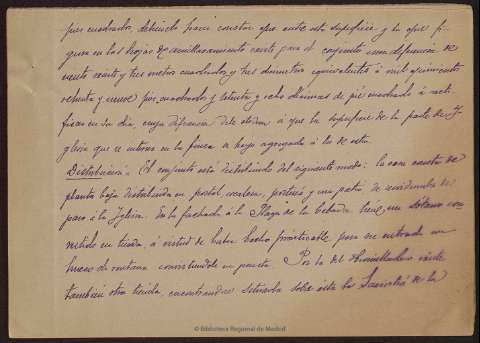 pies cuadrados, debiendo hacer constar que entre esta superficie y la que fi-
gura en las hojas de amillaramiento existe para el conjunto una diferencia de
ciento veinte y tres metros cuadrados y tres decimetros equivalentes á mil quinientos
ochenta y nueve pies cuadrados y setenta y ocho décimas de pié cuadrado á recti-
ficar en su dia, cuya diferencia debe obedecer á que la superficie de la parte de I-
glesia que se interna en la finca se haya agregado á la de esta.
Distribucion = El conjunto está distribuido del siguiente modo: la casa consta de
planta baja distribuida en portal, escalera, porteria y una patio de servidumbre de
paso á la Iglesia. En la fachada á la Plaza de la Cebada, tiene un sótano con-
vertido en tienda, á virtud de haber hecho practicable para su entrada un
hueco de ventana convirtiendole en puerta. Por la del Humilladero existe
también otra tienda, encontrandose situada sobre ésta la Sacristía de la
© Biblioteca Regional de Madrid